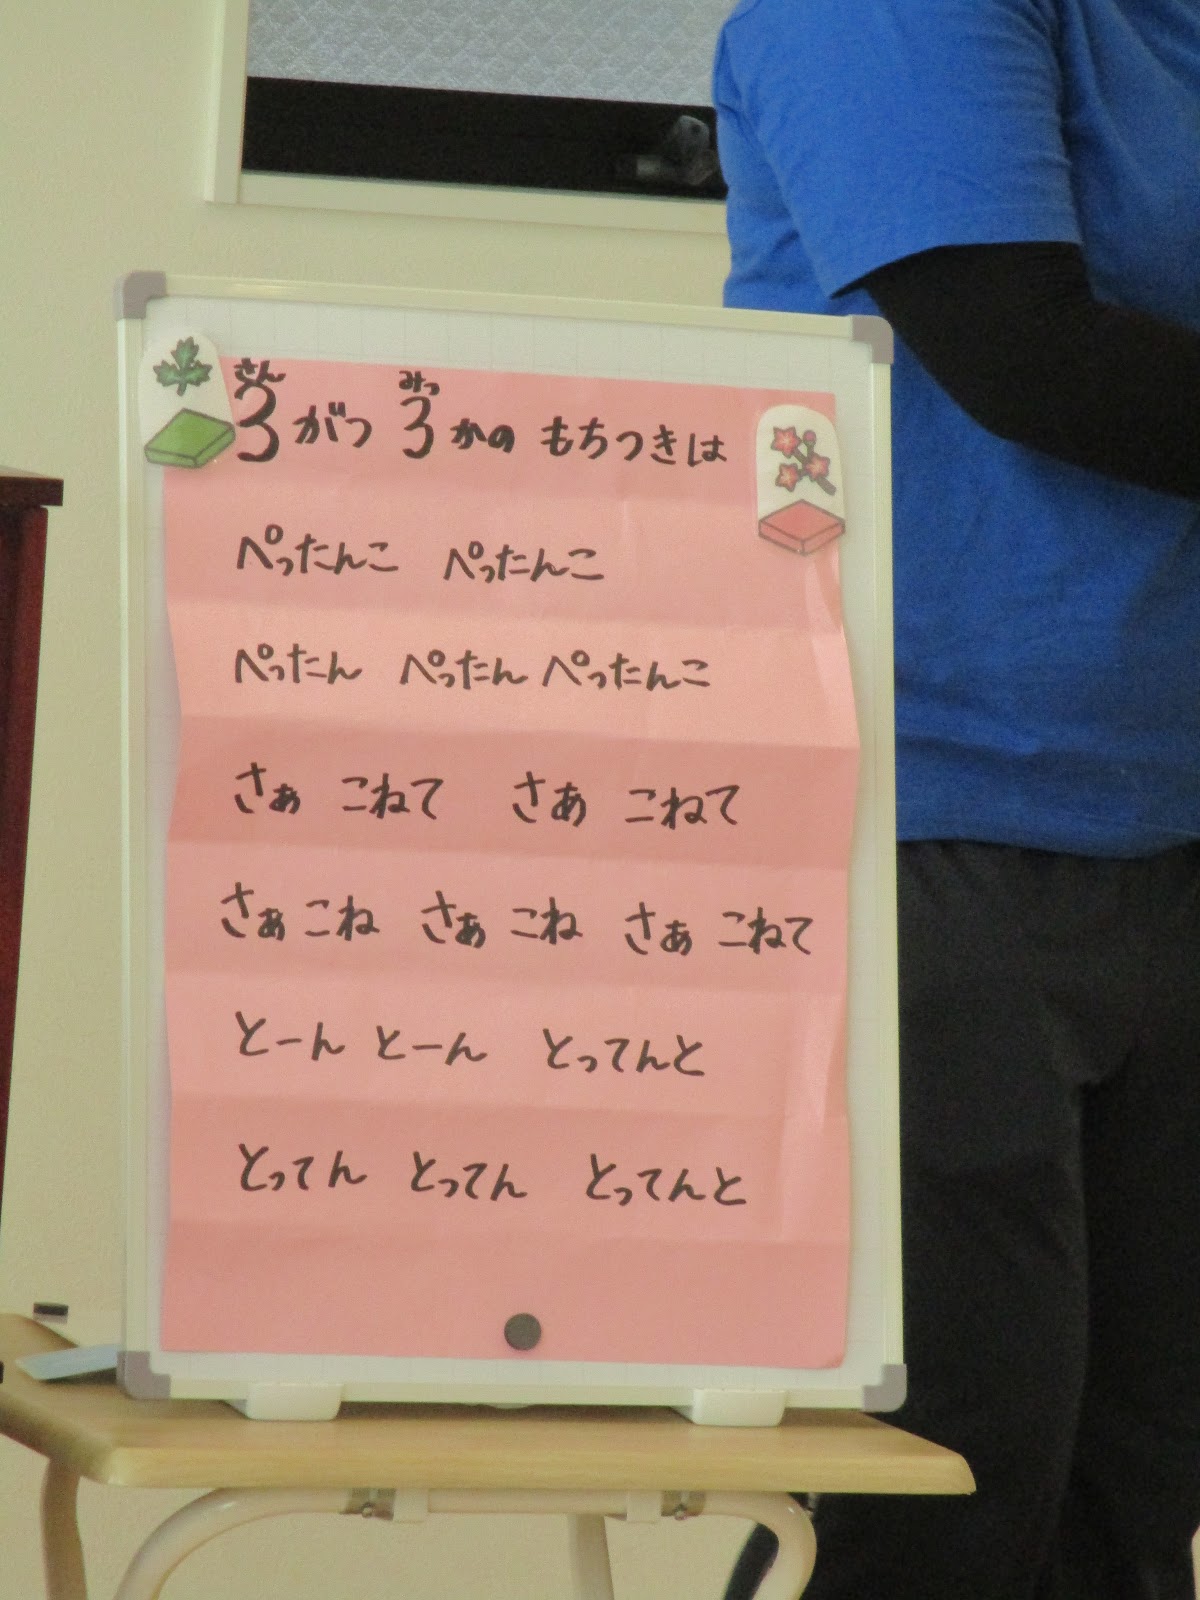 3がつ 3かの もちつきは
ぺったんこ ぺったんこ
ぺったん ぺったん ぺったんこ
さぁ こねて さぁ こねて
さぁ こね さぁ こね さぁ こねて
とーん とーん とってんと
とってん とってん とってんと